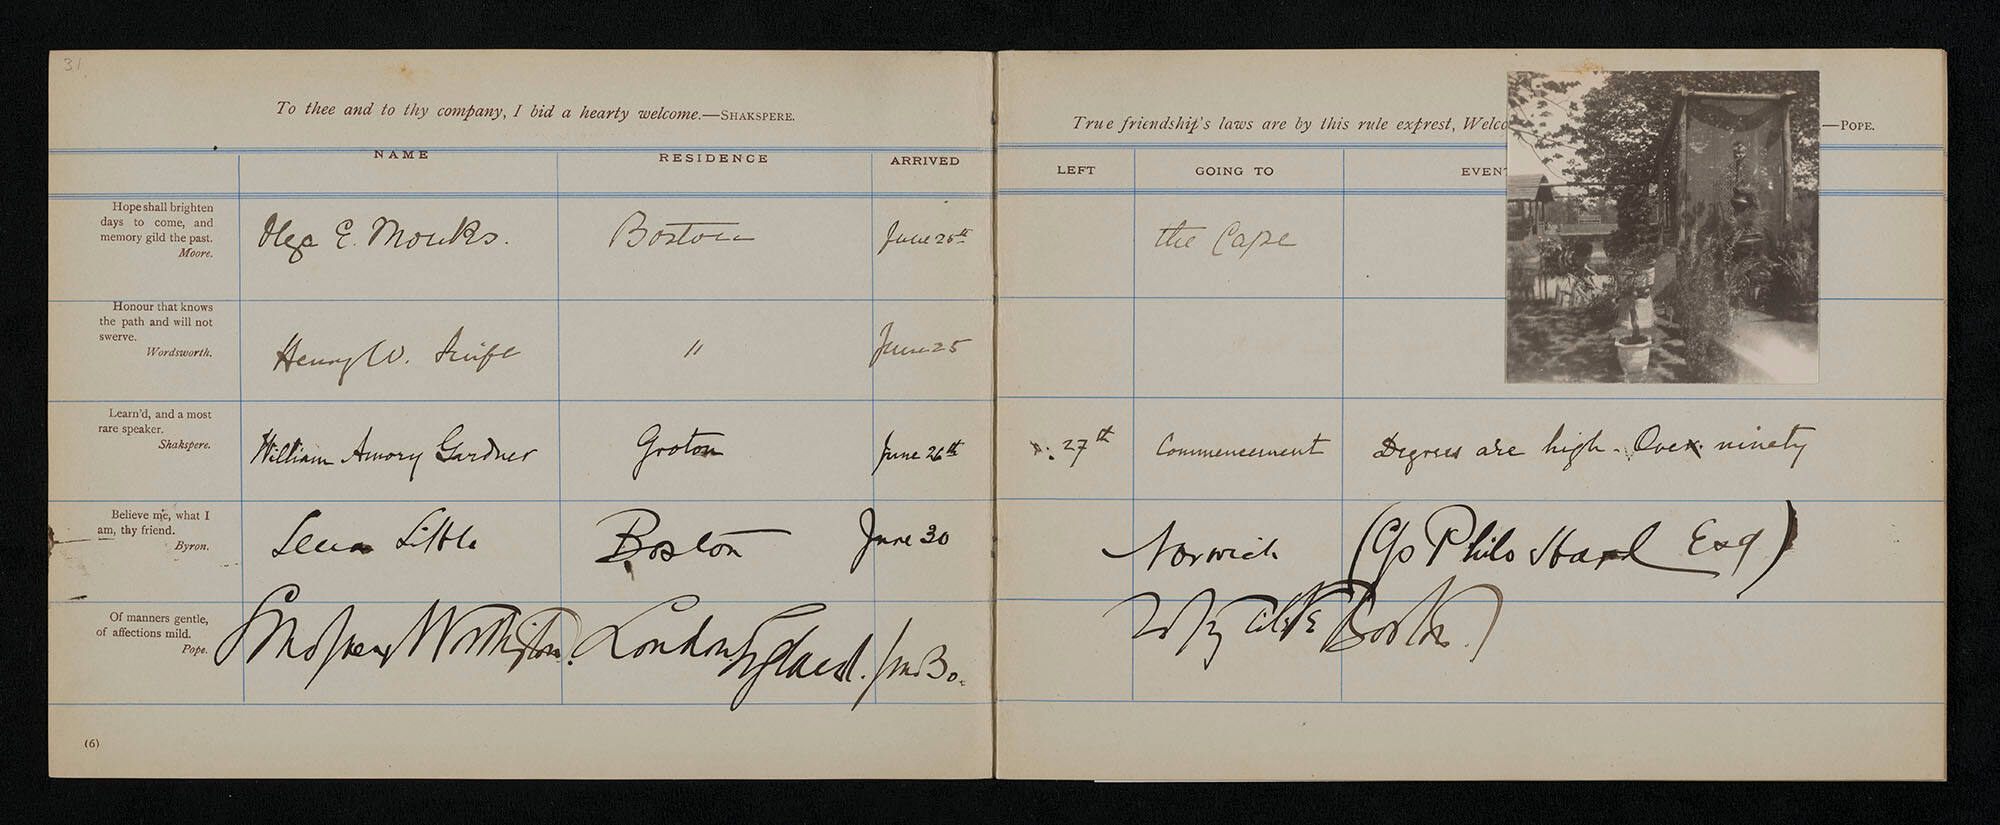 31
To thee and to thy company, I bid a hearty welcome.—SHAKSPERE.
NAME RESIDENCE ARRIVED
Hope shall brighten
days to come, and
memory gild the past.
Moore.
Olga E. Monks. Boston June 25th
Honour that knows
the path and will not
swerve.
Wordsworth.
Henry W. Swift " June 25
Learn'd, and a most
rare speaker.
Shakspere.
William Amory Gardner Groton June 26th
Believe me, what I
am, thy friend.
Byron.
Lena Little Boston June 30
Of manners gentle,
of affections mild.
Pope.
Worthington. London England. June 30.
(6)
True friendship's laws are by this rule exprest, Welco —POPE.
LEFT GOING TO EVENT
the Cape
27th Commencement Degrees are high. Over ninety
Norwich (C/o Philo Esq)
Boston.)